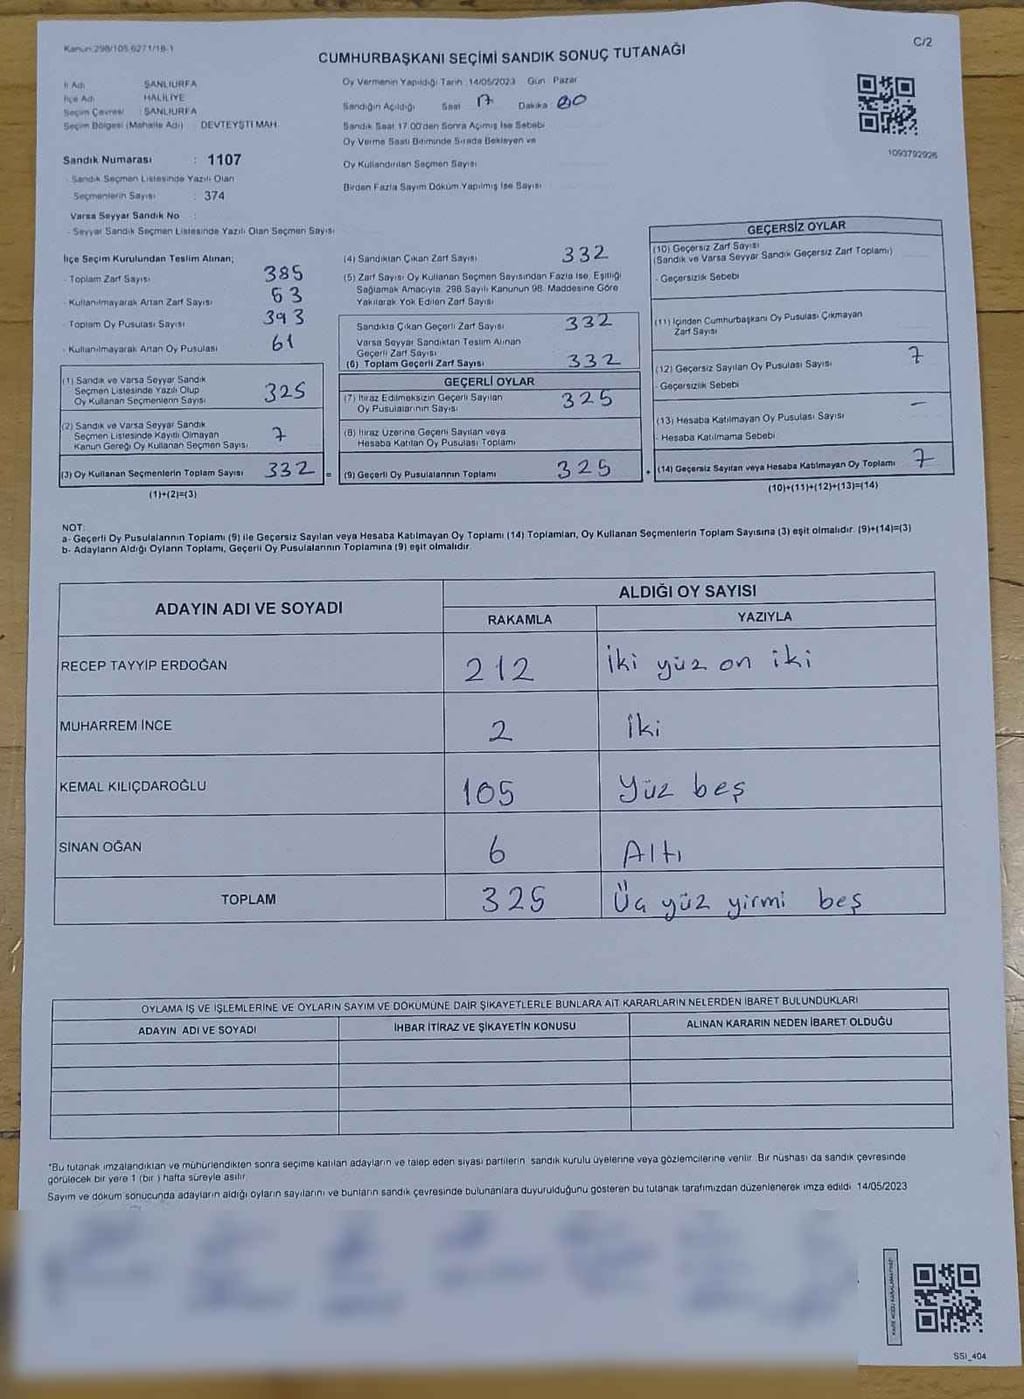 Kanun:298/105,6271/18-1
C/2
CUMHURBAŞKANI SEÇİMİ SANDIK SONUÇ TUTANAĞI
İl Adı : ŞANLIURFA
İlçe Adı : HALİLİYE
Seçim Çevresi : ŞANLIURFA
Seçim Bölgesi (Mahalle Adı) : DEVTEYŞTİ MAH.
Oy Vermenin Yapıldığı Tarih :14/05/2023 Gün : Pazar
Sandığın Açıldığı Saat 17 Dakika
Sandık Saat 17.00'den Sonra Açılmış İse Sebebi
Oy Verme Saati Bitiminde Sırada Bekleyen ve
Oy Kullandırılan Seçmen Sayısı
Birden Fazla Sayım Döküm Yapılmış İse Sayısı
1093792926
Sandık Numarası : 1107
- Sandık Seçmen Listesinde Yazılı Olan
Seçmenlerin Sayısı : 374
Varsa Seyyar Sandık No :
- Seyyar Sandık Seçmen Listesinde Yazılı Olan Seçmen Sayısı
İlçe Seçim Kurulundan Teslim Alınan;
- Toplam Zarf Sayısı 385
- Kullanılmayarak Artan Zarf Sayısı 53
- Toplam Oy Pusulası Sayısı 393
- Kullanılmayarak Artan Oy Pusulası 61
(1) Sandık ve Varsa Seyyar Sandık
Seçmen Listesinde Yazılı Olup
Oy Kullanan Seçmenlerin Sayısı 325
(2) Sandık ve Varsa Seyyar Sandık
Seçmen Listesinde Kayıtlı Olmayan
Kanun Gereği Oy Kullanan Seçmen Sayısı 7
(3) Oy Kullanan Seçmenlerin Toplam Sayısı 332 =
(1)+(2)=(3)
(4) Sandıktan Çıkan Zarf Sayısı 332
(5) Zarf Sayısı Oy Kullanan Seçmen Sayısından Fazla İse, Eşitliği
Sağlamak Amacıyla, 298 Sayılı Kanunun 98. Maddesine Göre
Yakılarak Yok Edilen Zarf Sayısı
Sandıkta Çıkan Geçerli Zarf Sayısı 332
Varsa Seyyar Sandıktan Teslim Alınan
Geçerli Zarf Sayısı
(6) Toplam Geçerli Zarf Sayısı 332
GEÇERLİ OYLAR
(7) İtiraz Edilmeksizin Geçerli Sayılan
Oy Pusulalarının Sayısı 325
(8) İtiraz Üzerine Geçerli Sayılan veya
Hesaba Katılan Oy Pusulası Toplamı
(9) Geçerli Oy Pusulalarının Toplamı 325 +
GEÇERSİZ OYLAR
(10) Geçersiz Zarf Sayısı
(Sandık ve Varsa Seyyar Sandık Geçersiz Zarf Toplamı)
- Geçersizlik Sebebi
(11) İçinden Cumhurbaşkanı Oy Pusulası Çıkmayan
Zarf Sayısı
(12) Geçersiz Sayılan Oy Pusulası Sayısı 7
- Geçersizlik Sebebi
(13) Hesaba Katılmayan Oy Pusulası Sayısı —
- Hesaba Katılmama Sebebi
(14) Geçersiz Sayılan veya Hesaba Katılmayan Oy Toplamı 7
(10)+(11)+(12)+(13)=(14)
NOT:
a- Geçerli Oy Pusulalarının Toplamı (9) ile Geçersiz Sayılan veya Hesaba Katılmayan Oy Toplamı (14) Toplamları, Oy Kullanan Seçmenlerin Toplam Sayısına (3) eşit olmalıdır. (9)+(14)=(3)
b- Adayların Aldığı Oyların Toplamı, Geçerli Oy Pusulalarının Toplamına (9) eşit olmalıdır.
ADAYIN ADI VE SOYADI
ALDIĞI OY SAYISI
RAKAMLA YAZIYLA
RECEP TAYYİP ERDOĞAN 212 İki yüz on iki
MUHARREM İNCE 2 İki
KEMAL KILIÇDAROĞLU 105 Yüz beş
SİNAN OĞAN 6 Altı
TOPLAM 325 Üç yüz yirmi beş
OYLAMA İŞ VE İŞLEMLERİNE VE OYLARIN SAYIM VE DÖKÜMÜNE DAİR ŞİKAYETLERLE BUNLARA AİT KARARLARIN NELERDEN İBARET BULUNDUKLARI
ADAYIN ADI VE SOYADI İHBAR İTİRAZ VE ŞİKAYETİN KONUSU ALINAN KARARIN NEDEN İBARET OLDUĞU
*Bu tutanak imzalandıktan ve mühürlendikten sonra seçime katılan adayların ve talep eden siyasi partilerin sandık kurulu üyelerine veya gözlemcilerine verilir. Bir nüshası da sandık çevresinde
görülecek bir yere 1 (bir ) hafta süreyle asılır.
Sayım ve döküm sonucunda adayların aldığı oyların sayılarını ve bunların sandık çevresinde bulunanlara duyurulduğunu gösteren bu tutanak tarafımızdan düzenlenerek imza edildi. 14/05/2023
SSI_404